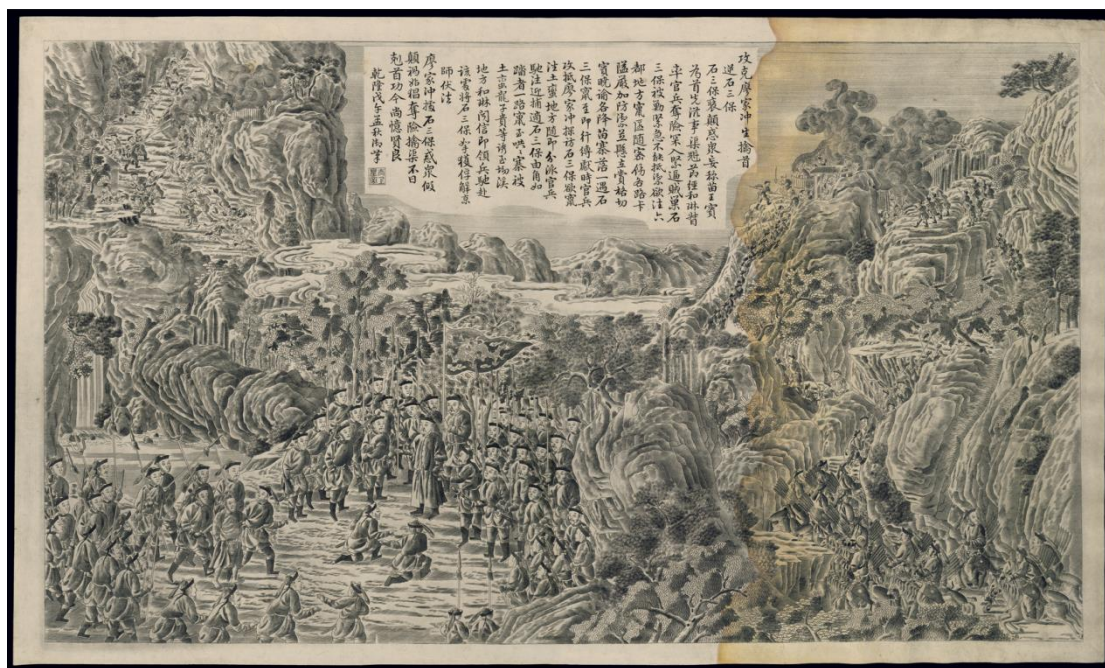 攻克廖家沖生擒首
逆石三保
石三保裹顛惑衆妄稱苗王實
為首先滋事渠魁茲經和琳督
率官兵奪險深入緊逼賊巢石
三保被勦緊急不能抵禦欲往六
都地方竄匿隨密飭各路卡
隘嚴加防禦並懸立賞格切
實曉諭各降苗寨落一遇石
三保竄至即行縛獻時官兵
攻抵廖家沖探訪石三保欲竄
往土蠻地方隨即分派官兵
馳往追捕適石三保由角如
踏者一路竄至哄哄寨被
土蠻龍子貴等誘至坳溪
地方和琳聞信即領兵馳赴
該處將石三保拏獲俘解京
師伏法
廖家沖擣石三保惑衆倡
顛禍兆招奪險擒渠不日
剋首功今尚憶賢良
乾隆戊午孟秋御筆